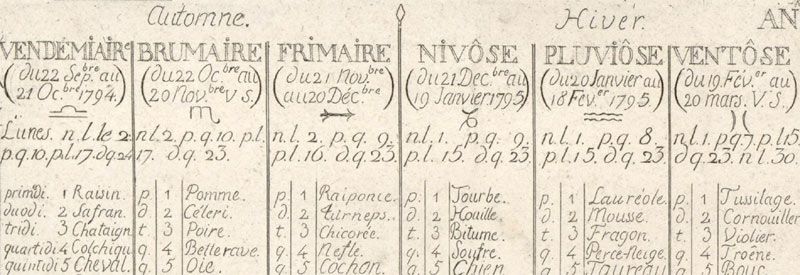 Automne. Hiver. AN
VENDÉMIAIRE BRUMAIRE FRIMAIRE NIVÔSE PLUVIÔSE VENTÔSE
(du 22 Sep.bre au (du 22 Oc.bre au (du 21 Nov.bre (du 21 Dec.bre au (du 20 Janvier au (du 19. Fév.er au
21 Oc.bre 1794.) 20 Nov.bre V S.) au 20 Déc.bre) 19 Janvier 1795) 18 Fév.er 1795.) 20 mars. V. S.)
Lunes. n.l. le 2. n.l. 2, p.q. 10. p.l. n.l. 2. p.q. 9. n.l. 1. p.q. 9. n.l. 1. p.q. 8. n.l. 1. p.q. 7. p.l. 15.
p.q. 10. p.l. 17. d.q. 24 17. d.q. 23. p.l. 16. d.q. 23. p.l. 15. d.q. 23. p.l. 15, d.q. 23. d.q. 23. n.l. 30.
primdi. 1 Raisin. p. 1 Pomme. p. 1 Raiponce. p. 1 Tourbe. p. 1 Lauréole. p. 1 Tussilage.
duodi. 2 Safran. d. 2 Céleri. d. 2 turneps. d. 2 Houille. d. 2 Mousse. d. 2 Cornouiller
tridi. 3 Chataign t. 3 Poire. t. 3 Chicorée. t. 3 Bitume. t. 3 Fragon. t. 3 Violier.
quartidi 4 Colchiqu q. 4 Betterave. q. 4 Nefle. q. 4 Soufre. q. 4 Perce-Neige. q. 4 Troène.
quintidi 5 Cheval. q. 5 Oie. q. 5 Cochon. q. 5 Chien q. 5 Taureau q. 5